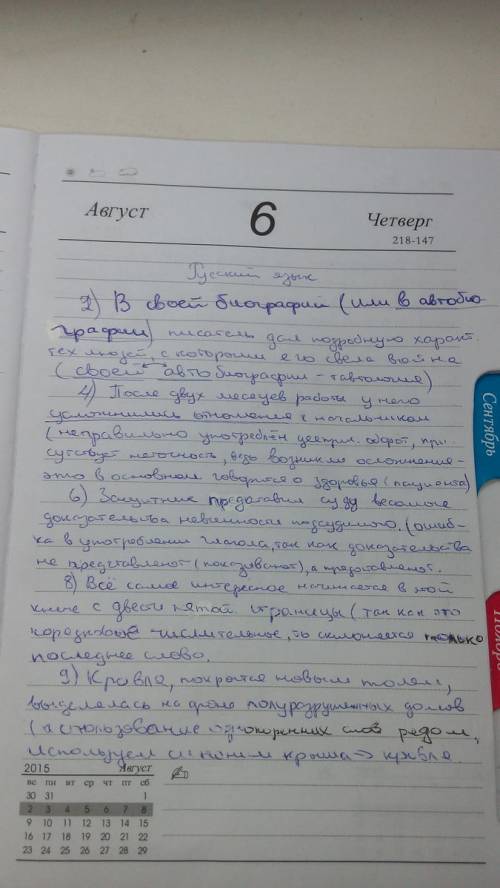 Август 6 Четверг
218-147
Русский язык
2) В своей биографии (или в автобио-
графии) писатель дал подробную характ.
тех людей, с которыми его свела война
(своей автобиографии - тавтология)
4) После двух месяцев работы у него
усложнились отношения с начальником
(неправильно употреблён дееприч. оборот, при-
сутствует неточность, ведь возникли осложнения -
это в основном говорится о здоровье (пациента)
6) Защитник представил суду весомые
доказательства невиновности подсудимого. (ошиб-
ка в употреблении глагола, так как доказательства
не представляют (показывают), а предоставляют.
8) Всё самое интересное начинается в той
книге с двести пятой страницы (так как это
порядковые числительные, то склоняется только
последнее слово.
9) Кровля, покрытая новым толем,
выделялась на фоне полуразрушенных домов
(использование однокоренных слов рядом,
используем синоним крыша → кровля.
2015 Август
вс пн вт ср чт пт сб
30 31 1
2 3 4 5 6 7 8
9 10 11 12 13 14 15
16 17 18 19 20 21 22
23 24 25 26 27 28 29
Сентябрь